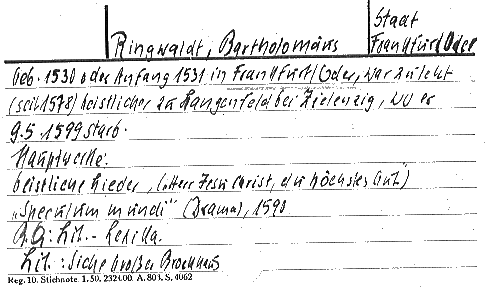 Stadt
Ringwaldt, Bartholomäus Frankfurt/Oder
Geb. 1530 oder Anfang 1531 in Frankfurt/Oder, war zuletzt
(seit 1578) Geistlicher zu Langenfeld bei Zielenzig, wo er
9.5 1599 starb.
Hauptwerke:
Geistliche Lieder, („Herr Jesu Christ, du höchstes Gut")
„Speculum mundi" (Drama), 1590
Lit. - Lexika.
Lit.: Siehe Großer Brockhaus
Reg. 10. Stichnote. 1. 50. 232400. A. 803. S. 4062